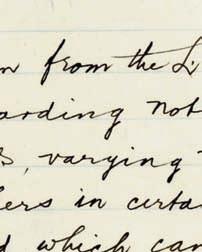 from the
arding not
varying
hers in certa
d which can